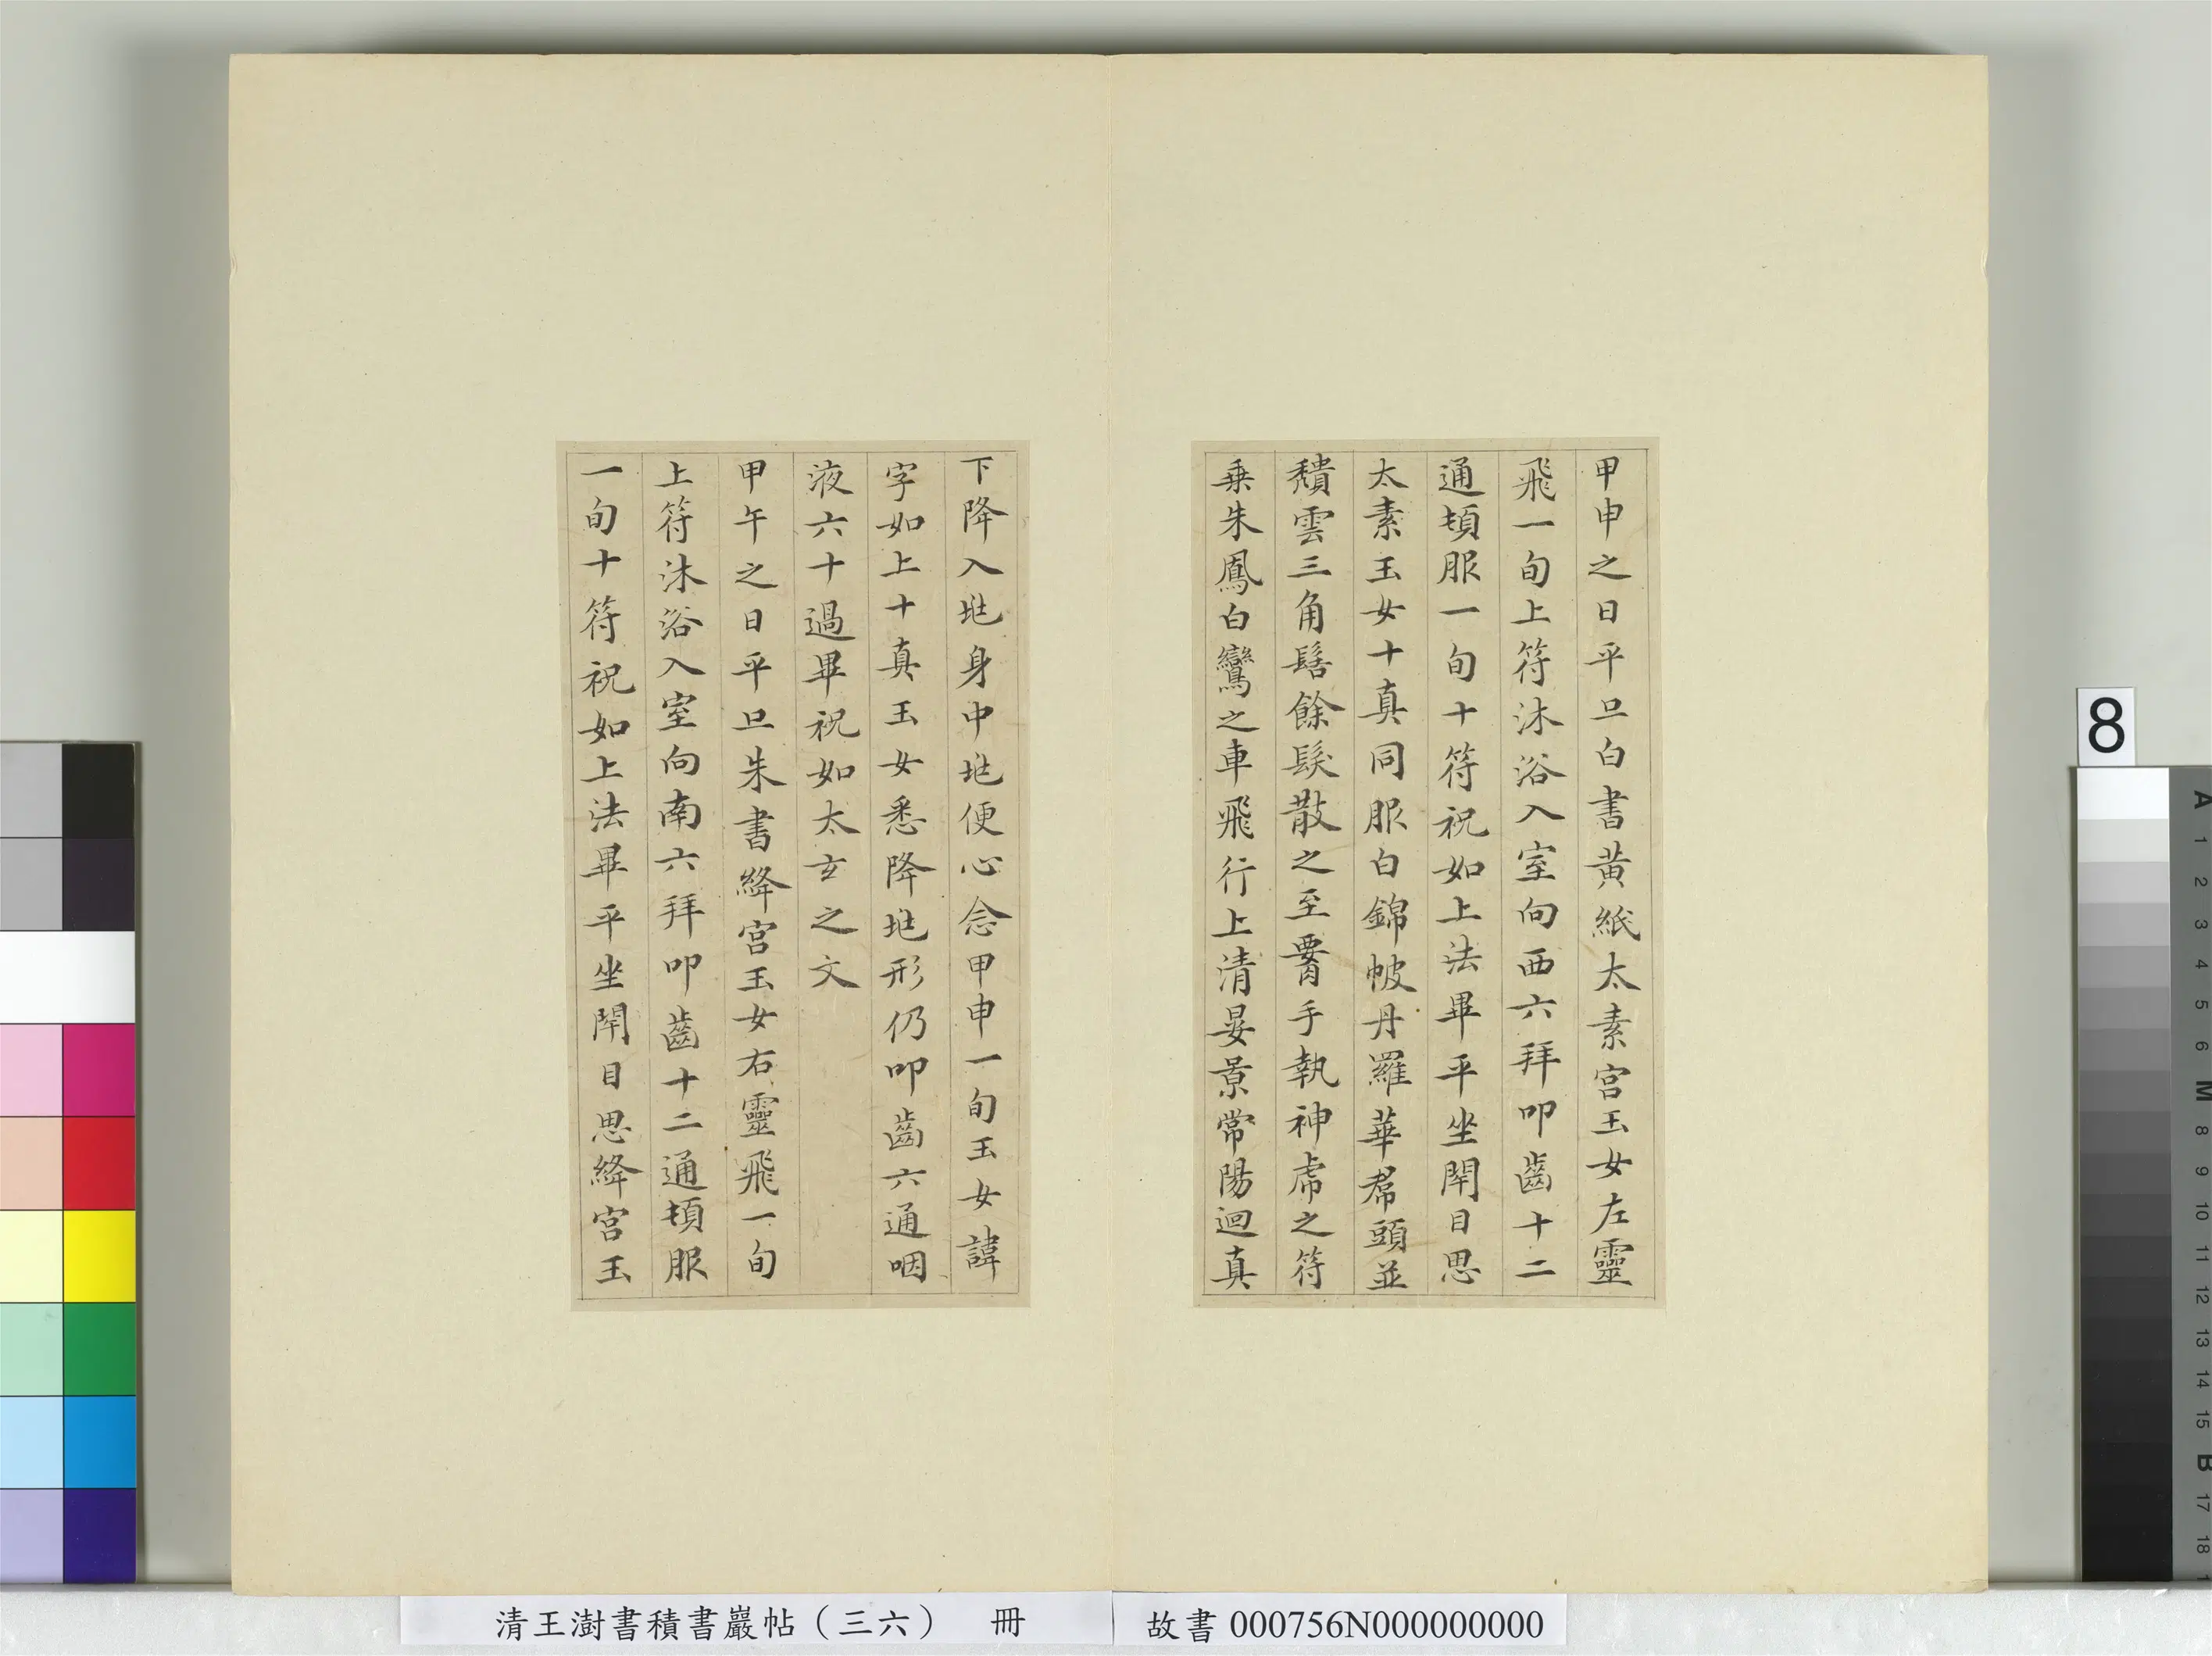 甲申之日平旦白書黃紙太素宮玉女左靈
飛一旬上符沐浴入室向西六拜叩齒十二
通頓服一旬十符祝如上法畢平坐閇目思
太素玉女十真同服白錦帔丹羅華帬頭並
穨雲三角髻餘髮散之至𦝫手執神虎之符
乗朱鳳白鸞之車飛行上清晏景常陽迴真
下降入𡉟身中𡉟便心念甲申一旬玉女諱
字如上十真玉女悉降𡉟形仍叩齒六通咽
液六十過畢祝如太玄之文
甲午之日平旦朱書絳宮玉女右靈飛一旬
上符沐浴入室向南六拜叩齒十二通頓服
一旬十符祝如上法畢平坐閇目思絳宮玉
清王澍書積書巖帖（三六） 冊
故書 000756N000000000
8
A 1 2 3 4 5 6 M 8 9 10 11 12 13 14 15 B 17 18